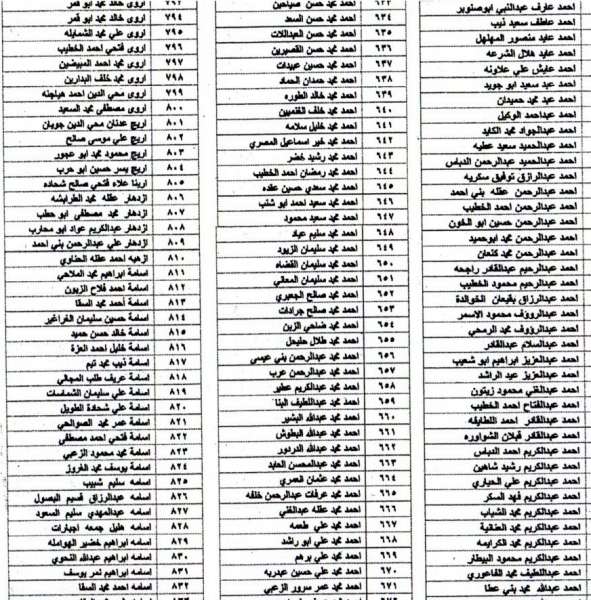 احمد عارف عبدالنبي ابوصنوبر
احمد عاطف سعيد ذيب
احمد عايد منصور المهلهل
احمد عايد هلال الشرعه
احمد عايش علي علاونه
احمد عبد سعيد ابو جويد
احمد عبد محمد حميدان
احمد عبداحمد الوكيل
احمد عبدالجواد محمد الكايد
احمد عبدالحميد سعيد عطيه
احمد عبدالحميد عبدالرحمن الدباس
احمد عبدالرازق توفيق سكريه
احمد عبدالرحمن عقله بني احمد
احمد عبدالرحمن احمد الخطيب
احمد عبدالرحمن حسين ابو الخون
احمد عبدالرحمن محمد ابوحميد
احمد عبدالرحمن محمد كنعان
احمد عبدالرحيم عبدالقادر راجحه
احمد عبدالرحيم محمود الخطيب
احمد عبدالرزاق بقيعان الخوالدة
احمد عبدالروؤف محمود الاسمر
احمد عبدالرؤوف محمد الرمحي
احمد عبدالسلام عبدالقادر
احمد عبدالعزيز ابراهيم ابو شعيب
احمد عبدالعزيز عبد الراشد
احمد عبدالغني محمود زيتون
احمد عبدالفتاح احمد الخطيب
احمد عبدالقادر احمد اللطايفه
احمد عبدالقادر قبلان الشواوره
احمد عبدالكريم احمد الدباس
احمد عبدالكريم رشيد شاهين
احمد عبدالكريم علي الحياري
احمد عبدالكريم فهد السكر
احمد عبدالكريم محمد الشياب
احمد عبدالكريم محمد العثمانية
احمد عبدالكريم محمد الكرايمه
احمد عبدالكريم محمود البيطار
احمد عبداللطيف محمد الفاعوري
احمد عبدالله محمد بني عطا
٦٣٣ احمد محمد حسن صياحين
٦٣٤ احمد محمد حسن السعد
٦٣٥ احمد محمد حسن العبداللات
٦٣٦ احمد محمد حسن القصيرين
٦٣٧ احمد محمد حسين عبيدات
٦٣٨ احمد محمد حمدان الحماد
٦٣٩ احمد محمد خالد الطوره
٦٤٠ احمد محمد خلف الغنميين
٦٤١ احمد محمد خليل سلامه
٦٤٢ احمد محمد خير اسماعيل المصري
٦٤٣ احمد محمد رشيد خضر
٦٤٤ احمد محمد رمضان احمد الخطيب
٦٤٥ احمد محمد سعدي حسين عقده
٦٤٦ احمد محمد سعيد احمد ابو شنب
٦٤٧ احمد محمد سعيد محمود
٦٤٨ احمد محمد سليم عياد
٦٤٩ احمد محمد سليمان الزيود
٦٥٠ احمد محمد سليمان القضاه
٦٥١ احمد محمد سليمان المعاني
٦٥٢ احمد محمد صالح الجعبري
٦٥٣ احمد محمد صالح جرادات
٦٥٤ احمد محمد ضاحي الزبن
٦٥٥ احمد محمد طلال حليحل
٦٥٦ احمد محمد عبدالرحمن بني عيسى
٦٥٧ احمد محمد عبدالرحمن عرب
٦٥٨ احمد محمد عبدالكريم عطير
٦٥٩ احمد محمد عبداللطيف البنا
٦٦٠ احمد محمد عبدالله البشير
٦٦١ احمد محمد عبدالله البطوش
٦٦٢ احمد محمد عبدالله الدردور
٦٦٣ احمد محمد عبدالمحسن العابد
٦٦٤ احمد محمد عثمان العمري
٦٦٥ احمد محمد عرفات عبدالرحمن خلفه
٦٦٦ احمد محمد عقله عبدالغني
٦٦٧ احمد محمد علي طعمه
٦٦٨ احمد محمد علي ابو راشد
٦٦٩ احمد محمد علي برهم
٦٧٠ احمد محمد علي حسين عبدربه
٦٧١ احمد محمد عمر سرور الزعبي
٧٩٣ اروى خالد محمد ابو قمر
٧٩٤ اروى خالد محمد ابو قمر
٧٩٥ اروى علي محمد الشمايله
٧٩٦ اروى فتحي احمد الخطيب
٧٩٧ اروى محمد احمد المبيضين
٧٩٨ اروى محمد خلف البدارين
٧٩٩ اروى محي الدين احمد هيلجنه
٨٠٠ اروى مصطفى محمد السعيد
٨٠١ اريج عدنان محي الدين جويان
٨٠٢ اريج علي موسى صالح
٨٠٣ اريج محمود محمد ابو عجور
٨٠٤ اريج يسر حسين ابو حرب
٨٠٥ ارينا علاء فتحي صالح شحاده
٨٠٦ ازدهار عقله محمد الطرابشه
٨٠٧ ازدهار محمد مصطفى ابو حطب
٨٠٨ ازدهار عبدالكريم عواد ابو محارب
٨٠٩ ازدهار علي عبدالرحمن بني احمد
٨١٠ ازهيه احمد عقله الحناوي
٨١١ اسامة ابراهيم محمد الملاحي
٨١٢ اسامة احمد فلاح الزبون
٨١٣ اسامة احمد محمد السقا
٨١٤ اسامة حسين سليمان الخراغير
٨١٥ اسامة خالد حسن حميد
٨١٦ اسامة خليل احمد العزة
٨١٧ اسامة ذيب محمد تيم
٨١٨ اسامة عريف طلب المجالي
٨١٩ اسامة علي سليمان الشماسات
٨٢٠ اسامة علي شحادة الطويل
٨٢١ اسامة عمر محمد الصوالحي
٨٢٢ اسامة فتحي احمد مصطفى
٨٢٣ اسامة محمد محمود الزعبي
٨٢٤ اسامة يوسف محمد الغروز
٨٢٥ اسامه سليم شبيب
٨٢٦ اسامه عبدالرزاق قسيم البصول
٨٢٧ اسامه عبدالمهدي سليم السعود
٨٢٨ اسامه هليل جمعه اجبارات
٨٢٩ اسامه ابراهيم خضير الهوامله
٨٣٠ اسامه ابراهيم عبدالله النحوي
٨٣١ اسامه ابراهيم نمر يوسف
٨٣٢ اسامه احمد محمد السقا